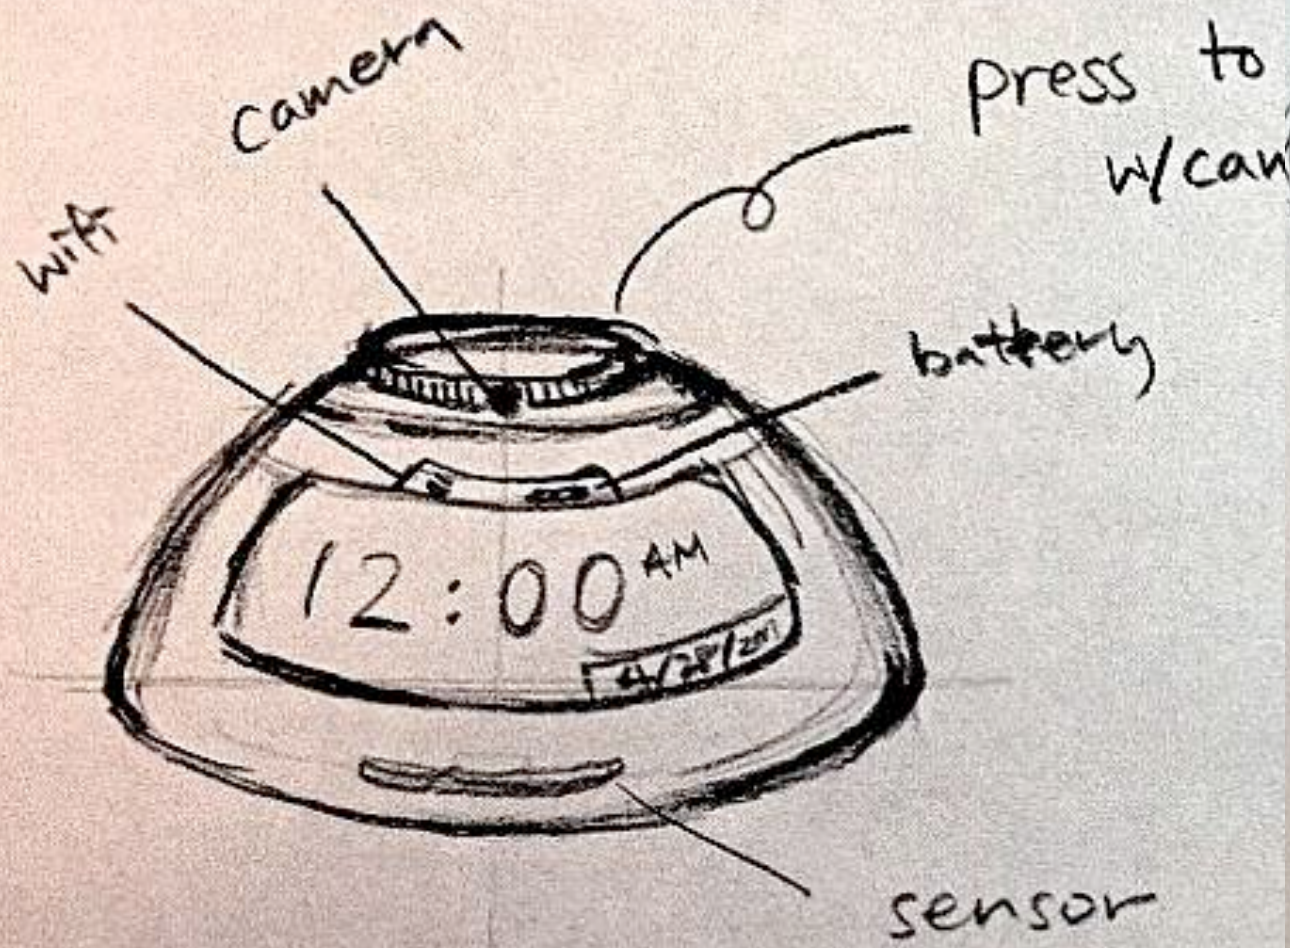 camera
press to
w/cam
wifi
battery
12:00 AM
4/28/2017
sensor